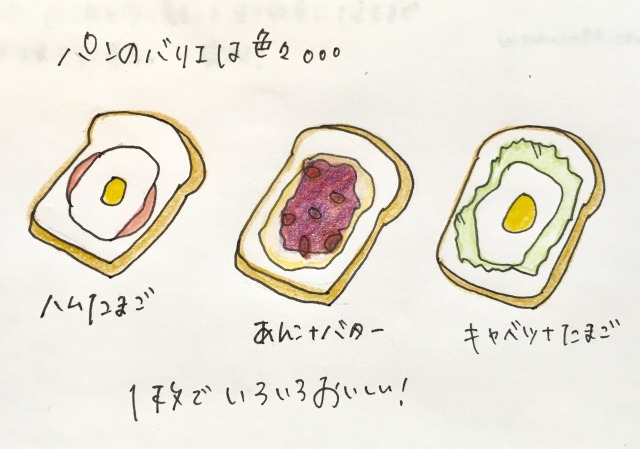 パンのバリエは色々。。。
ハムたまご
あんこ+バター
キャベツ+たまご
1枚でいろいろおいしい!